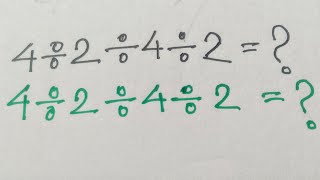 4÷2÷4÷2=?
4÷2÷4÷2=?